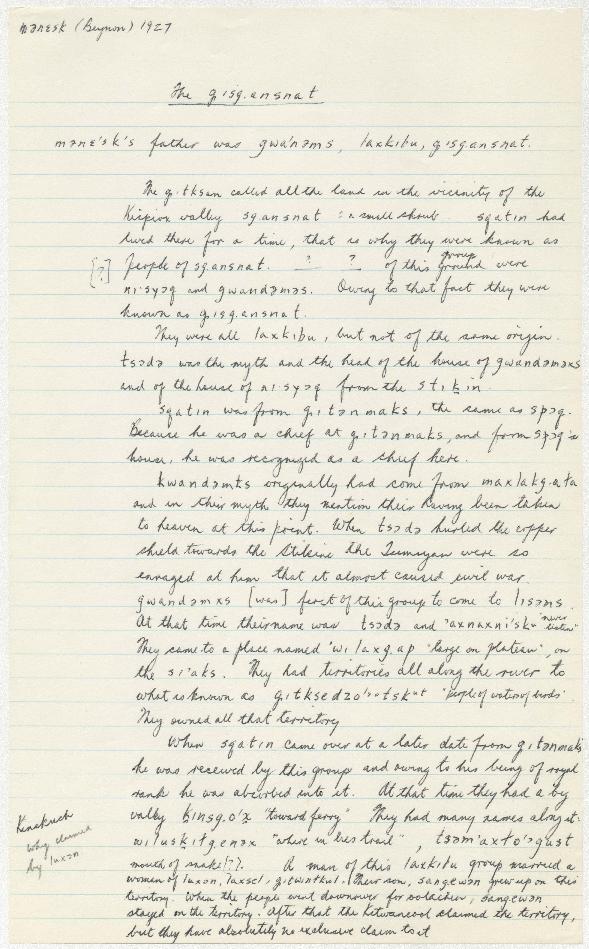 mənɛsk (Beynon) 1927
The gisg.ansnat
mənɛ'sk's father was gwa'nəms, laxkibu, gisgansnat.
The g.itksan called all the land in the vicinity of the
Kispiox valley sgansnat : a small shrub. sqatin had
lived there for a time, that is why they were known as
[?] People of sgansnat. ? ? of this group ground were
ni'syɔq and gwandəməs. Owing to that fact they were
known as gisg.ansnat.
They were all laxkibu, but not of the same origin.
tsədə was the myth and the head of the house of gwandəməxs
and of the house of ni'syɔq from the stikin.
sqatin was from g.itənmaks, the same as spɔq.
Because he was a chief at g.itənmaks, and from spɔq's
house, he was recognized as a chief here.
kwandəmts originally had come from maxlakg.ata
and in their myth they mention their having been taken
to heaven at this point. When tsədə hurled the copper
shield towards the Stikine the were so
enraged at him that it almost caused civil war.
gwandəmxs [was] first of this group to come to lisəms.
At that time their name was tsədə and 'axnaxni'sk" "never listen"
They came to a place named 'wi'laxg.ap "large on plateau", on
the si'aks. They had territories all along the river to
what is known as "People of water of birds".
They owned all that territory
When sqatin came over at a later date from g.itənmaks
he was received by this group and owing to his being of royal
rank he was absorbed into it. At that time they had a by
valley kinsg.o'x "toward ferry" They had many names along it.
wiluskitgenax "where in lies trail", tsəm'axto'ɔqust
mouth of snake[??]. A man of this laxkibu group married a
women of luxən, laxsel, gitwinlkul. Their son, sangewən grew up on this
territory. When the people went downriver for oolachen, sangewən
stayed on the territory. After that the Kitwancool claimed the territory,
but they have absolutely no exclusive claim to it
Kinskuch
why claimed
by luxən